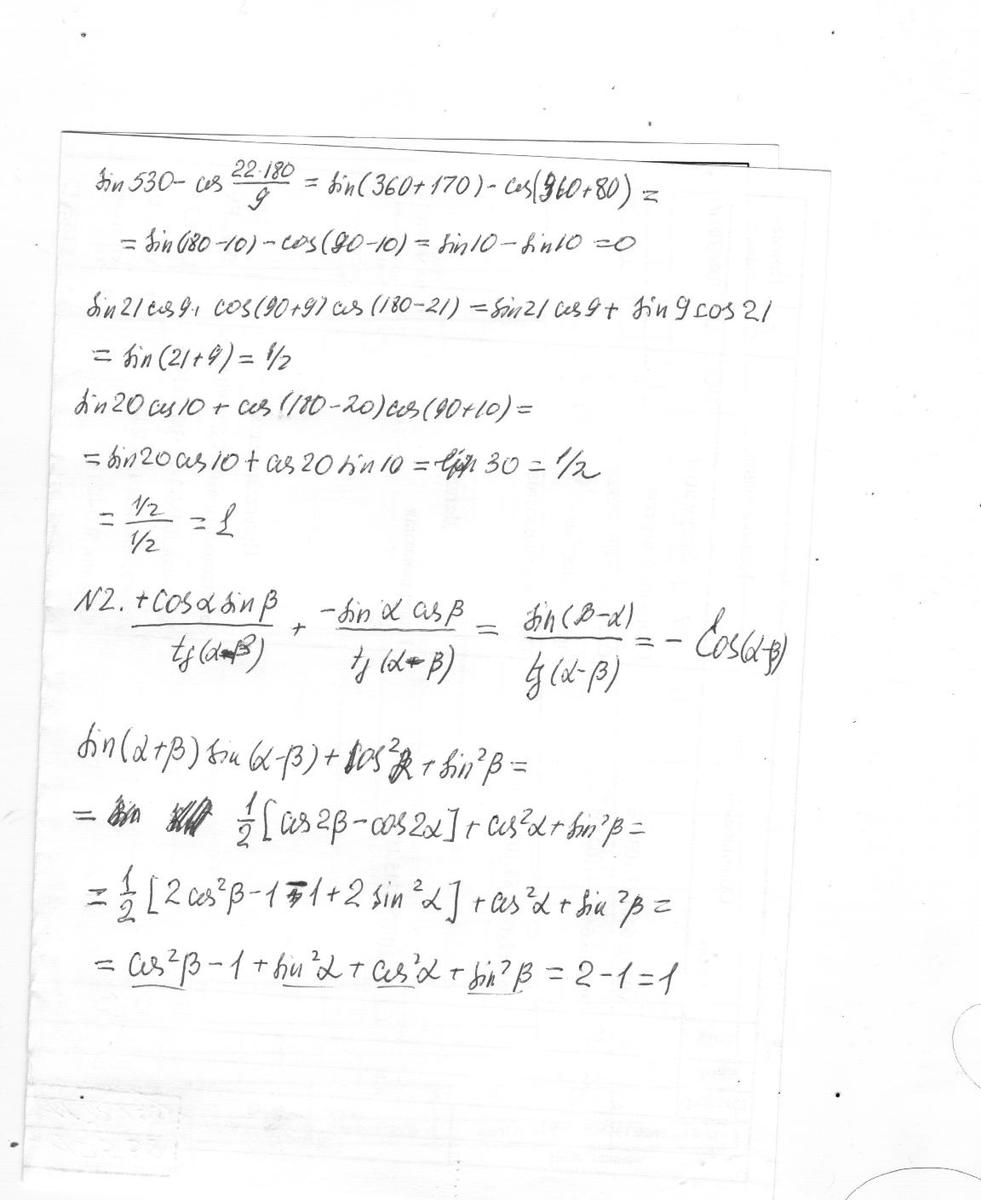 sin 530 - cos 22·180/9 = sin(360+170) - cos(360+80) =
= sin(180-10) - cos(90-10) = sin10 - sin10 = 0
sin21 cos9 + cos(90+9) cos(180-21) = sin21 cos9 + sin9 cos21
= sin(21+9) = 1/2
sin20 cos10 + cos(180-20)cos(90+10) =
= sin20 cos10 + cos20 sin10 = sin 30 = 1/2
= 1/2 / 1/2 = 1
N2. +cosα sinβ / tg(α-β) + -sinα cosβ / tg(α-β) = sin(β-α) / tg(α-β) = - Cos(α-β)
sin(α+β) sin(α-β) + cos²α + sin²β =
= 1/2 [cos2β - cos2α] + cos²α + sin²β =
= 1/2 [2cos²β - 1 - 1 + 2 sin²α] + cos²α + sin²β =
= cos²β - 1 + sin²α + cos²α + sin²β = 2 - 1 = 1